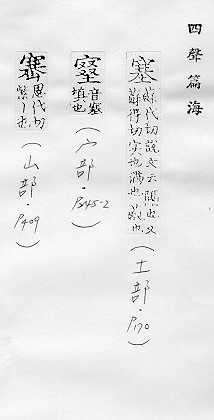 四聲篇海
塞 蘇代切說文云也又
蘇得切實也滿也也
(土部．P.170)
音塞
填也
(宀部．P.345-2)
思代切
(山部．P.409)